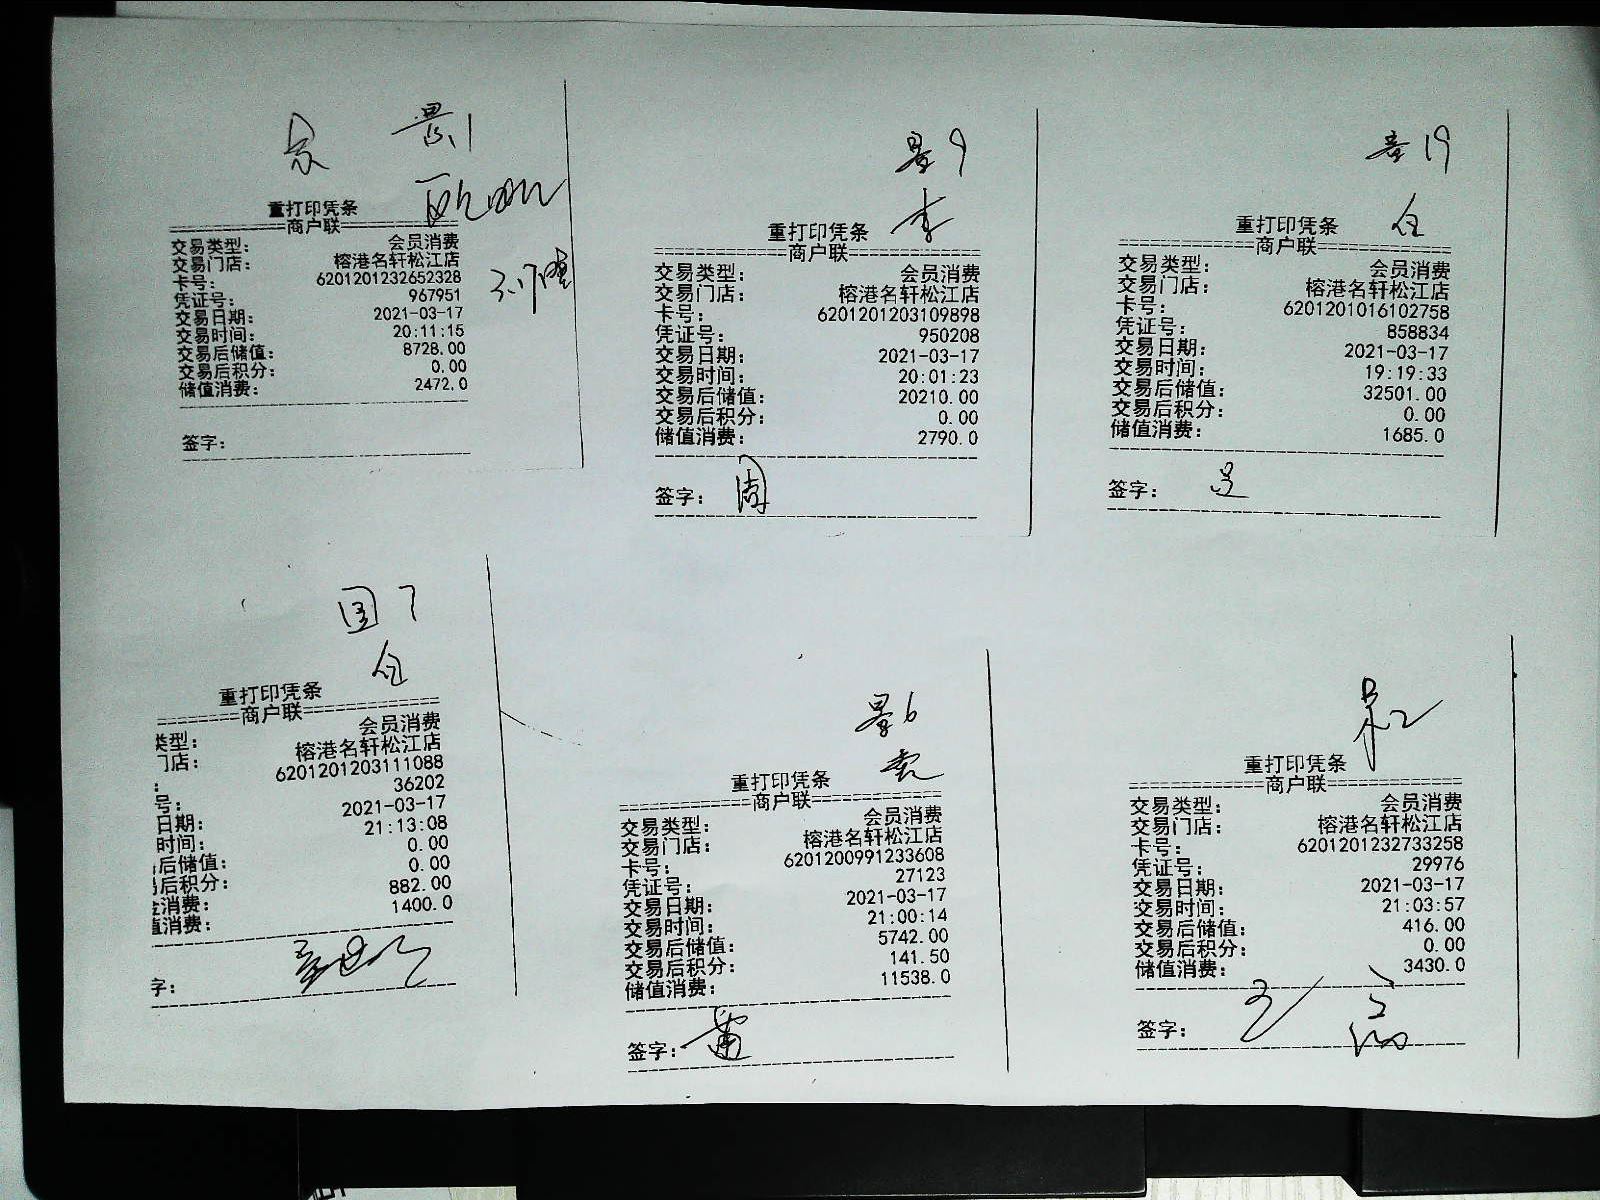 景1
重打印凭条
商户联
交易类型: 会员消费
交易门店: 榕港名轩松江店
卡号: 6201201232652328
凭证号: 967951
交易日期: 2021-03-17
交易时间: 20:11:15
交易后储值: 8728.00
交易后积分: 0.00
储值消费: 2472.0
签字:
3.17晚
景9
李
重打印凭条
商户联
交易类型: 会员消费
交易门店: 榕港名轩松江店
卡号: 6201201203109898
凭证号: 950208
交易日期: 2021-03-17
交易时间: 20:01:23
交易后储值: 20210.00
交易后积分: 0.00
储值消费: 2790.0
签字: 周
景19
仓
重打印凭条
商户联
交易类型: 会员消费
交易门店: 榕港名轩松江店
卡号: 6201201016102758
凭证号: 858834
交易日期: 2021-03-17
交易时间: 19:19:33
交易后储值: 32501.00
交易后积分: 0.00
储值消费: 1685.0
签字:
国7
仓
重打印凭条
商户联
类型: 会员消费
门店: 榕港名轩松江店
: 6201201203111088
号: 36202
日期: 2021-03-17
时间: 21:13:08
后储值: 0.00
后积分: 0.00
消费: 882.00
值消费: 1400.0
字:
景6
重打印凭条
商户联
交易类型: 会员消费
交易门店: 榕港名轩松江店
卡号: 6201200991233608
凭证号: 27123
交易日期: 2021-03-17
交易时间: 21:00:14
交易后储值: 5742.00
交易后积分: 141.50
储值消费: 11538.0
签字:
重打印凭条
商户联
交易类型: 会员消费
交易门店: 榕港名轩松江店
卡号: 6201201232733258
凭证号: 29976
交易日期: 2021-03-17
交易时间: 21:03:57
交易后储值: 416.00
交易后积分: 0.00
储值消费: 3430.0
签字: